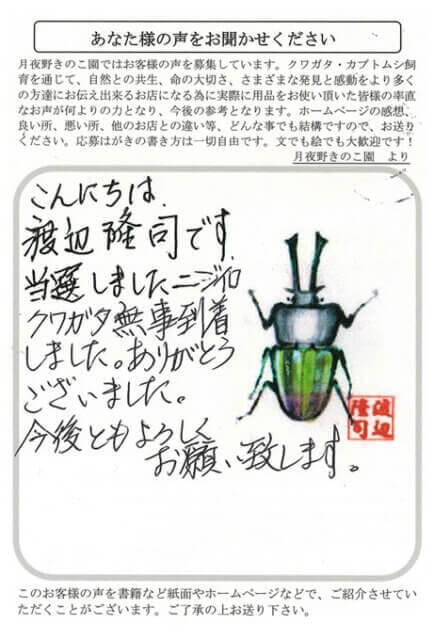 あなた様の声をお聞かせください
月夜野きのこ園ではお客様の声を募集しています。クワガタ・カブトムシ飼
育を通じて、自然との共生、命の大切さ、さまざまな発見と感動をより多く
の方達にお伝え出来るお店になる為に実際に用品をお使い頂いた皆様の率直
なお声が何よりの力となり、今後の参考となります。ホームページの感想、
良い所、悪い所、他のお店との違い等、どんな事でも結構ですので、お送り
ください。応募はがきの書き方は一切自由です。文でも絵でも大歓迎です！
月夜野きのこ園　より
こんにちは、
渡辺隆司です。
当選しましたニジイロ
クワガタ無事到着
しました。ありがとう
ございました。
今後ともよろしく
お願い致します。
渡辺
隆司
このお客様の声を書籍など紙面やホームページなどで、ご紹介させてい
ただくことがございます。ご了承の上お送り下さい。